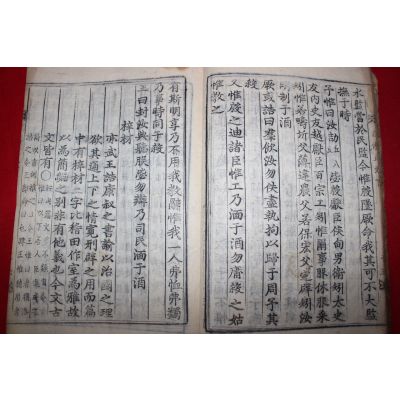 水監當於民監今惟殷墜厥命我其可不大監
撫于時
予惟曰汝劼毖殷獻臣侯甸男衛矧太史
友內史友越獻臣百宗工矧惟爾事服休服采
矧惟若疇圻父薄違農父若保宏父定辟矧汝
剛制于酒
厥或誥曰群飲汝勿佚盡執拘以歸于周予其
殺
又惟殷之迪諸臣惟工乃湎于酒勿庸殺之姑
惟敎之
有斯明享乃不用我敎辭惟我一人弗恤弗蠲
乃事時同于殺
王曰封汝典聽朕毖勿辯乃司民湎于酒
梓材
亦武王誥康叔之書諭以治國之理
欲其通上下之情寬刑辟之用而篇
中有梓材二字比稽田作室爲雅故
以爲簡編之別非有他義也今文古
文皆有